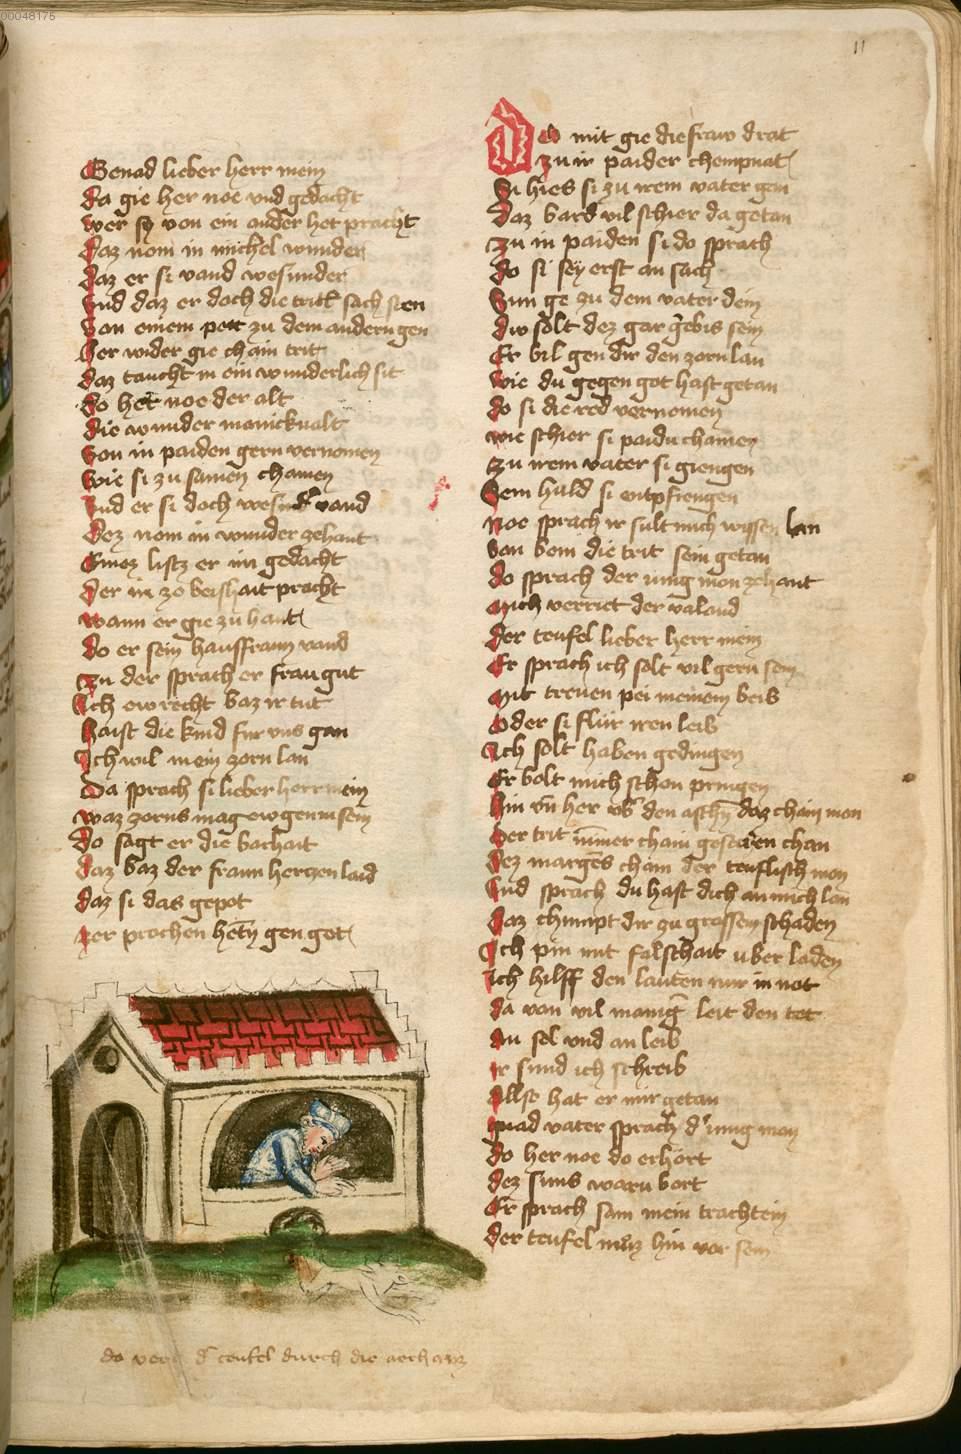 00048175
11
Genad lieber herr mein
da gie her noe vnd gedacht
wer sy von ein ander het pracht
daz nom in michel wunder
daz er si vand wesunder
vnd daz er doch die trit sach sten
Von einem pett zu dem andern gen
her wider gie chain trit
daz taucht in ein wunderlich sit
do het noe der alt
die wunder manickualt
von in paiden gern vernomen
wie si zu samen chomen
vnd er si doch wesunder vand
Dez nom in wunder zehant
Einez listz er im gedacht
der in zo beishait pracht
wann er gie zu hant
do er sein hauffraun vand
zu der sprach er frau gut
Ich ew recht baz ir tut
haist die kind fur vns gan
Ich wil mein zorn lan
Da sprach si lieber herr mein
waz zorns mag ewgen in sein
do sagt er die bachait
daz baz der fraun herczen laid
daz si das gepot
zer prochen heten gen got
Do mit gie die fraw drat
zu ir paider chempnat
Si hies si zu irem vater gen
daz bard vil schier da getan
zu in paiden si do sprach
do si sey erst an sach
Sun ge zu dem vater dein
dw solt dez gar gebis sein
Er bil gen dir den zorn lan
wie du gegen got hast getan
do si die red vernomen
wie schier si paidu chamen
zu irem vater si giengen
Sein huld si entpfiengen
Noe sprach ir sult mich wissen lan
von bem die trit sein getan
do sprach der iung mon zehant
Mich verriet der valand
der teufel lieber herr mein
Er sprach ich solt vil gern sein
Mit treuen pei meinem beib
Oder si flür iren leib
Ich solt haben gedingen
Er bolt mich schon pringen
hin vn her vber den aschen daz chain mon
Der trit nimmer chain gesehen chan
Dez margens cham der teuflisch mon
Vnd sprach du hast dich an mich lan
daz chumpt dir zu grossem schaden
Ich pin mit falschait uber laden
Ich hilff den lauten nur in not
da von vil manig leit den tot
An sel vnd an leib
ir sund ich schreib
Allso hat er mir getan
gnad vater sprach der iung mon
do her noe do erhort
dez suns waru bort
Er sprach sam mein trachtein
der teufel muz hin vor sein
do der teufel durch die arch